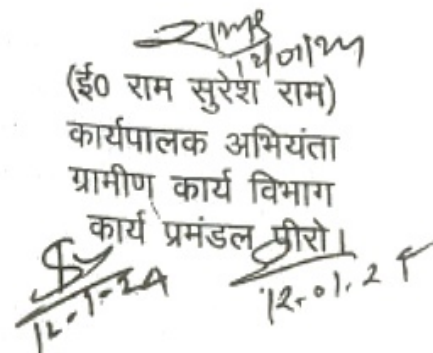 (ई० राम सुरेश राम)
कार्यपालक अभियंता
ग्रामीण कार्य विभाग
कार्य प्रमंडल पीरो।
12-1-24
12.01.24